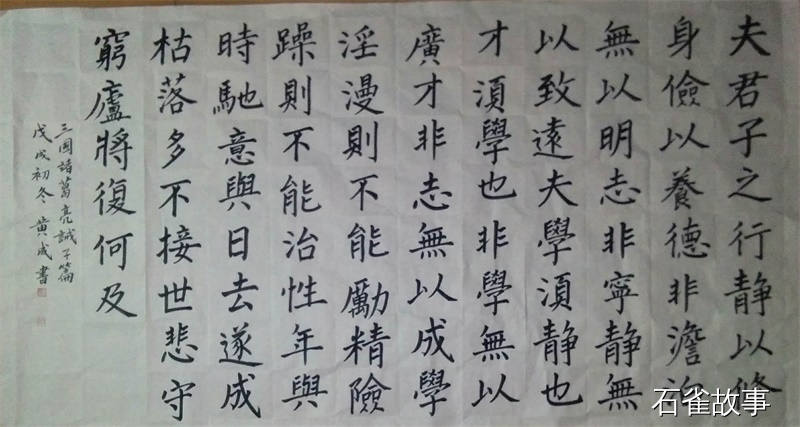 夫君子之行静以修
身儉以養德非澹泊
無以明志非寧静無
以致遠夫學湏静也
才湏學也非學無以
廣才非志無以成學
淫漫則不能勵精險
躁則不能治性年與
時馳意與日去遂成
枯落多不接世悲守
窮廬將復何及
三國諸葛亮誡子篇
戊戌初冬黄成書
石雀故事